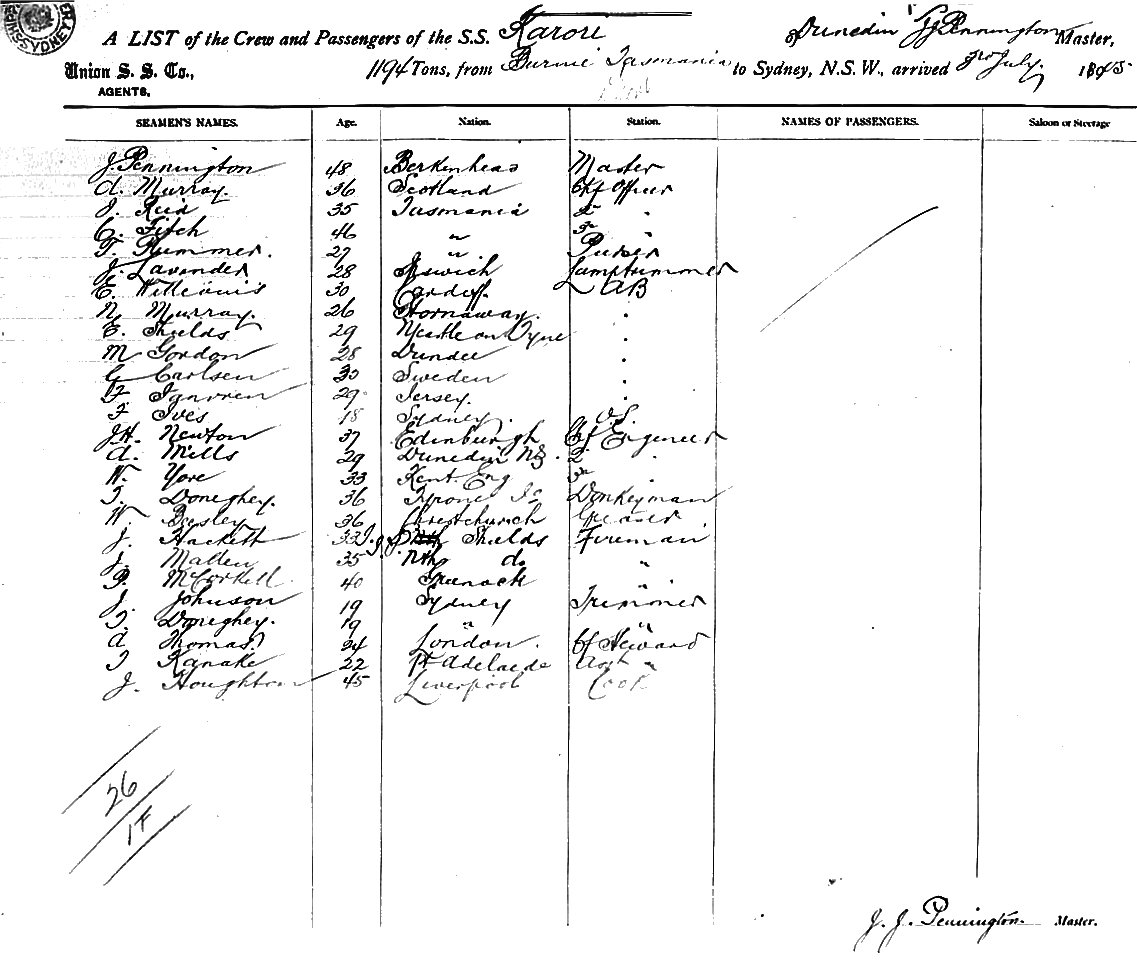 A LIST of the Crew and Passengers of the S.S. Karori of Dunedin J J Pennington Master,
Union S. S. Co., 1194 Tons, from Burnie Tasmania to Sydney, N.S.W., arrived 3rd July
AGENTS,
SEAMEN'S NAMES. Age. Nation. Station. NAMES OF PASSENGERS. Saloon or Steerage
J. Pennington 48 Berkenhead Master
A. Murray. 36 Scotland Chf Officer
J. Reid 35 Tasmania 2nd "
C. Fitch 46 " 3rd "
F. Plummer. 27 " Purser
J. Lavender 28 Ipswich Lamptrimmer
E. Williams 30 Cardiff. AB
N. Murray. 26 Stornaway. "
E. Shields 29 Newcastle on Tyne "
M Gordon 28 Dundee "
G Carlsen 30 Sweden "
29 Jersey. "
F Ives 18 Sydney. O.S.
J.H. Newton 37 Edinburgh Chf Engineer
A. Mills 29 Dunedin NZ. 2 "
W. Yore 33 Kent Eng 3rd "
T. Doneghey. 36 Tyrone Donkeyman
W. Besley 36 Christchurch Greaser
J. Hackett 33 Shields Fireman
J. Mallen 35 Nth do "
P. McCorkell. 40 Greenock "
J. Johnson 19 Sydney Trimmer
T. Doneghey. 19 " "
A Thomas. 24 London. Chf Steward
T Kanake 22 Pt Adelaide Asst "
J. Houghton 45 Liverpool Cook
26
1F
J. J. Pennington. Master.